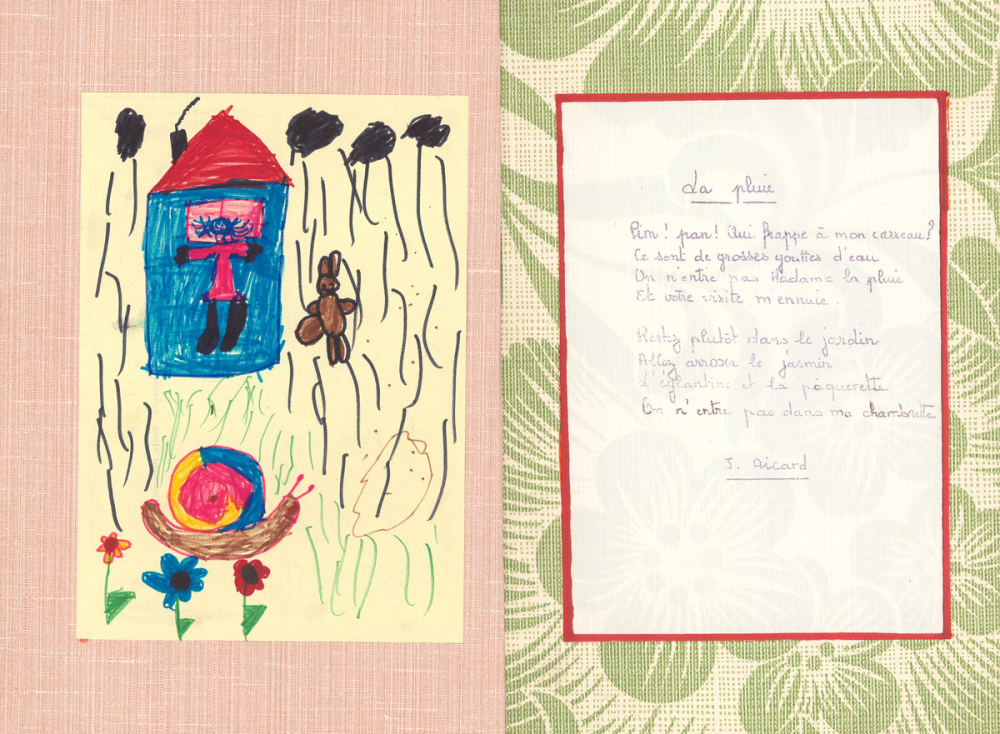 La pluie
Pin ! pan ! Qui frappe à mon carreau ?
Ce sont de grosses gouttes d'eau
On n'entre pas Madame la pluie
Et votre visite m'ennuie.
Restez plutôt dans le jardin
Allez arroser le jasmin
L'églantine et la pâquerette
On n'entre pas dans ma chambrette
J. Aicard